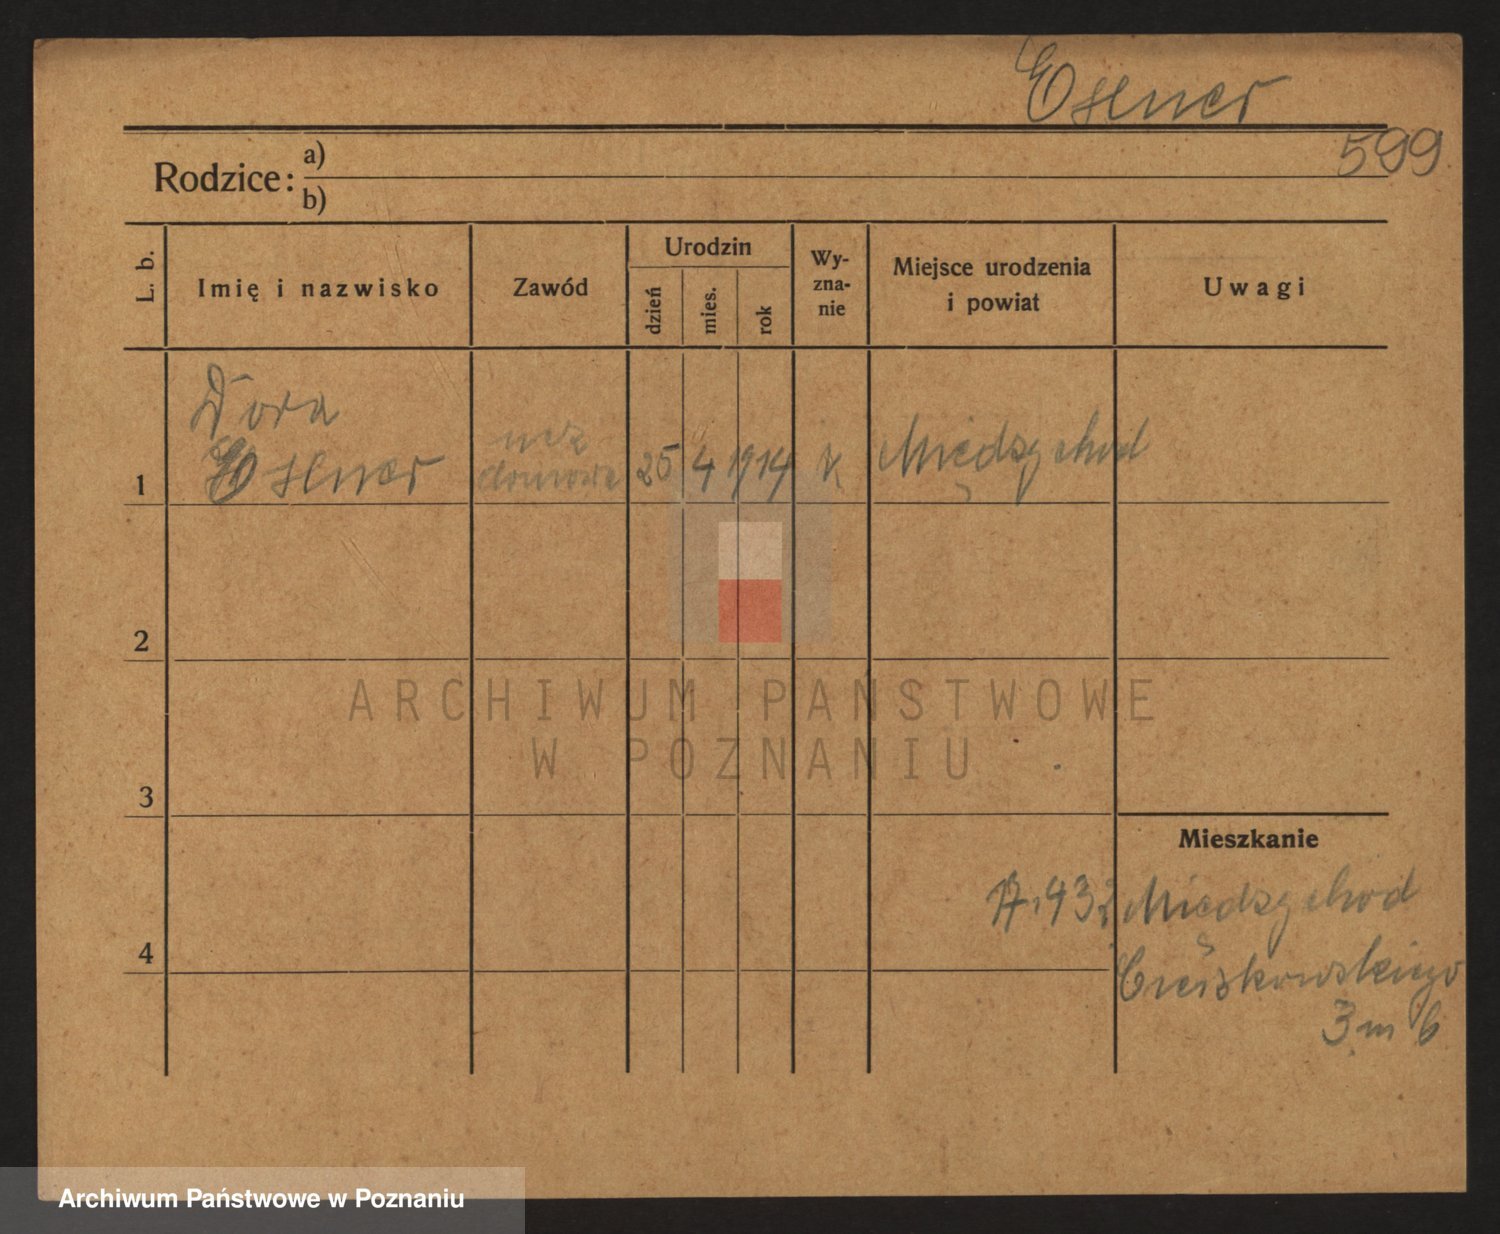 Esener
599
Rodzice: a)
b)
L. b.
Imię i nazwisko
Zawód
Urodzin
dzień
mies.
rok
Wy-
zna-
nie
Miejsce urodzenia
i powiat
Uwagi
Dora
1 Esener domowa 25 4 1914 K Międzychód
2
3
4
Mieszkanie
Międzychód
Cieszkowskiego
3 m 6
ARCHIWUM PAŃSTWOWE
W POZNANIU
Archiwum Państwowe w Poznaniu